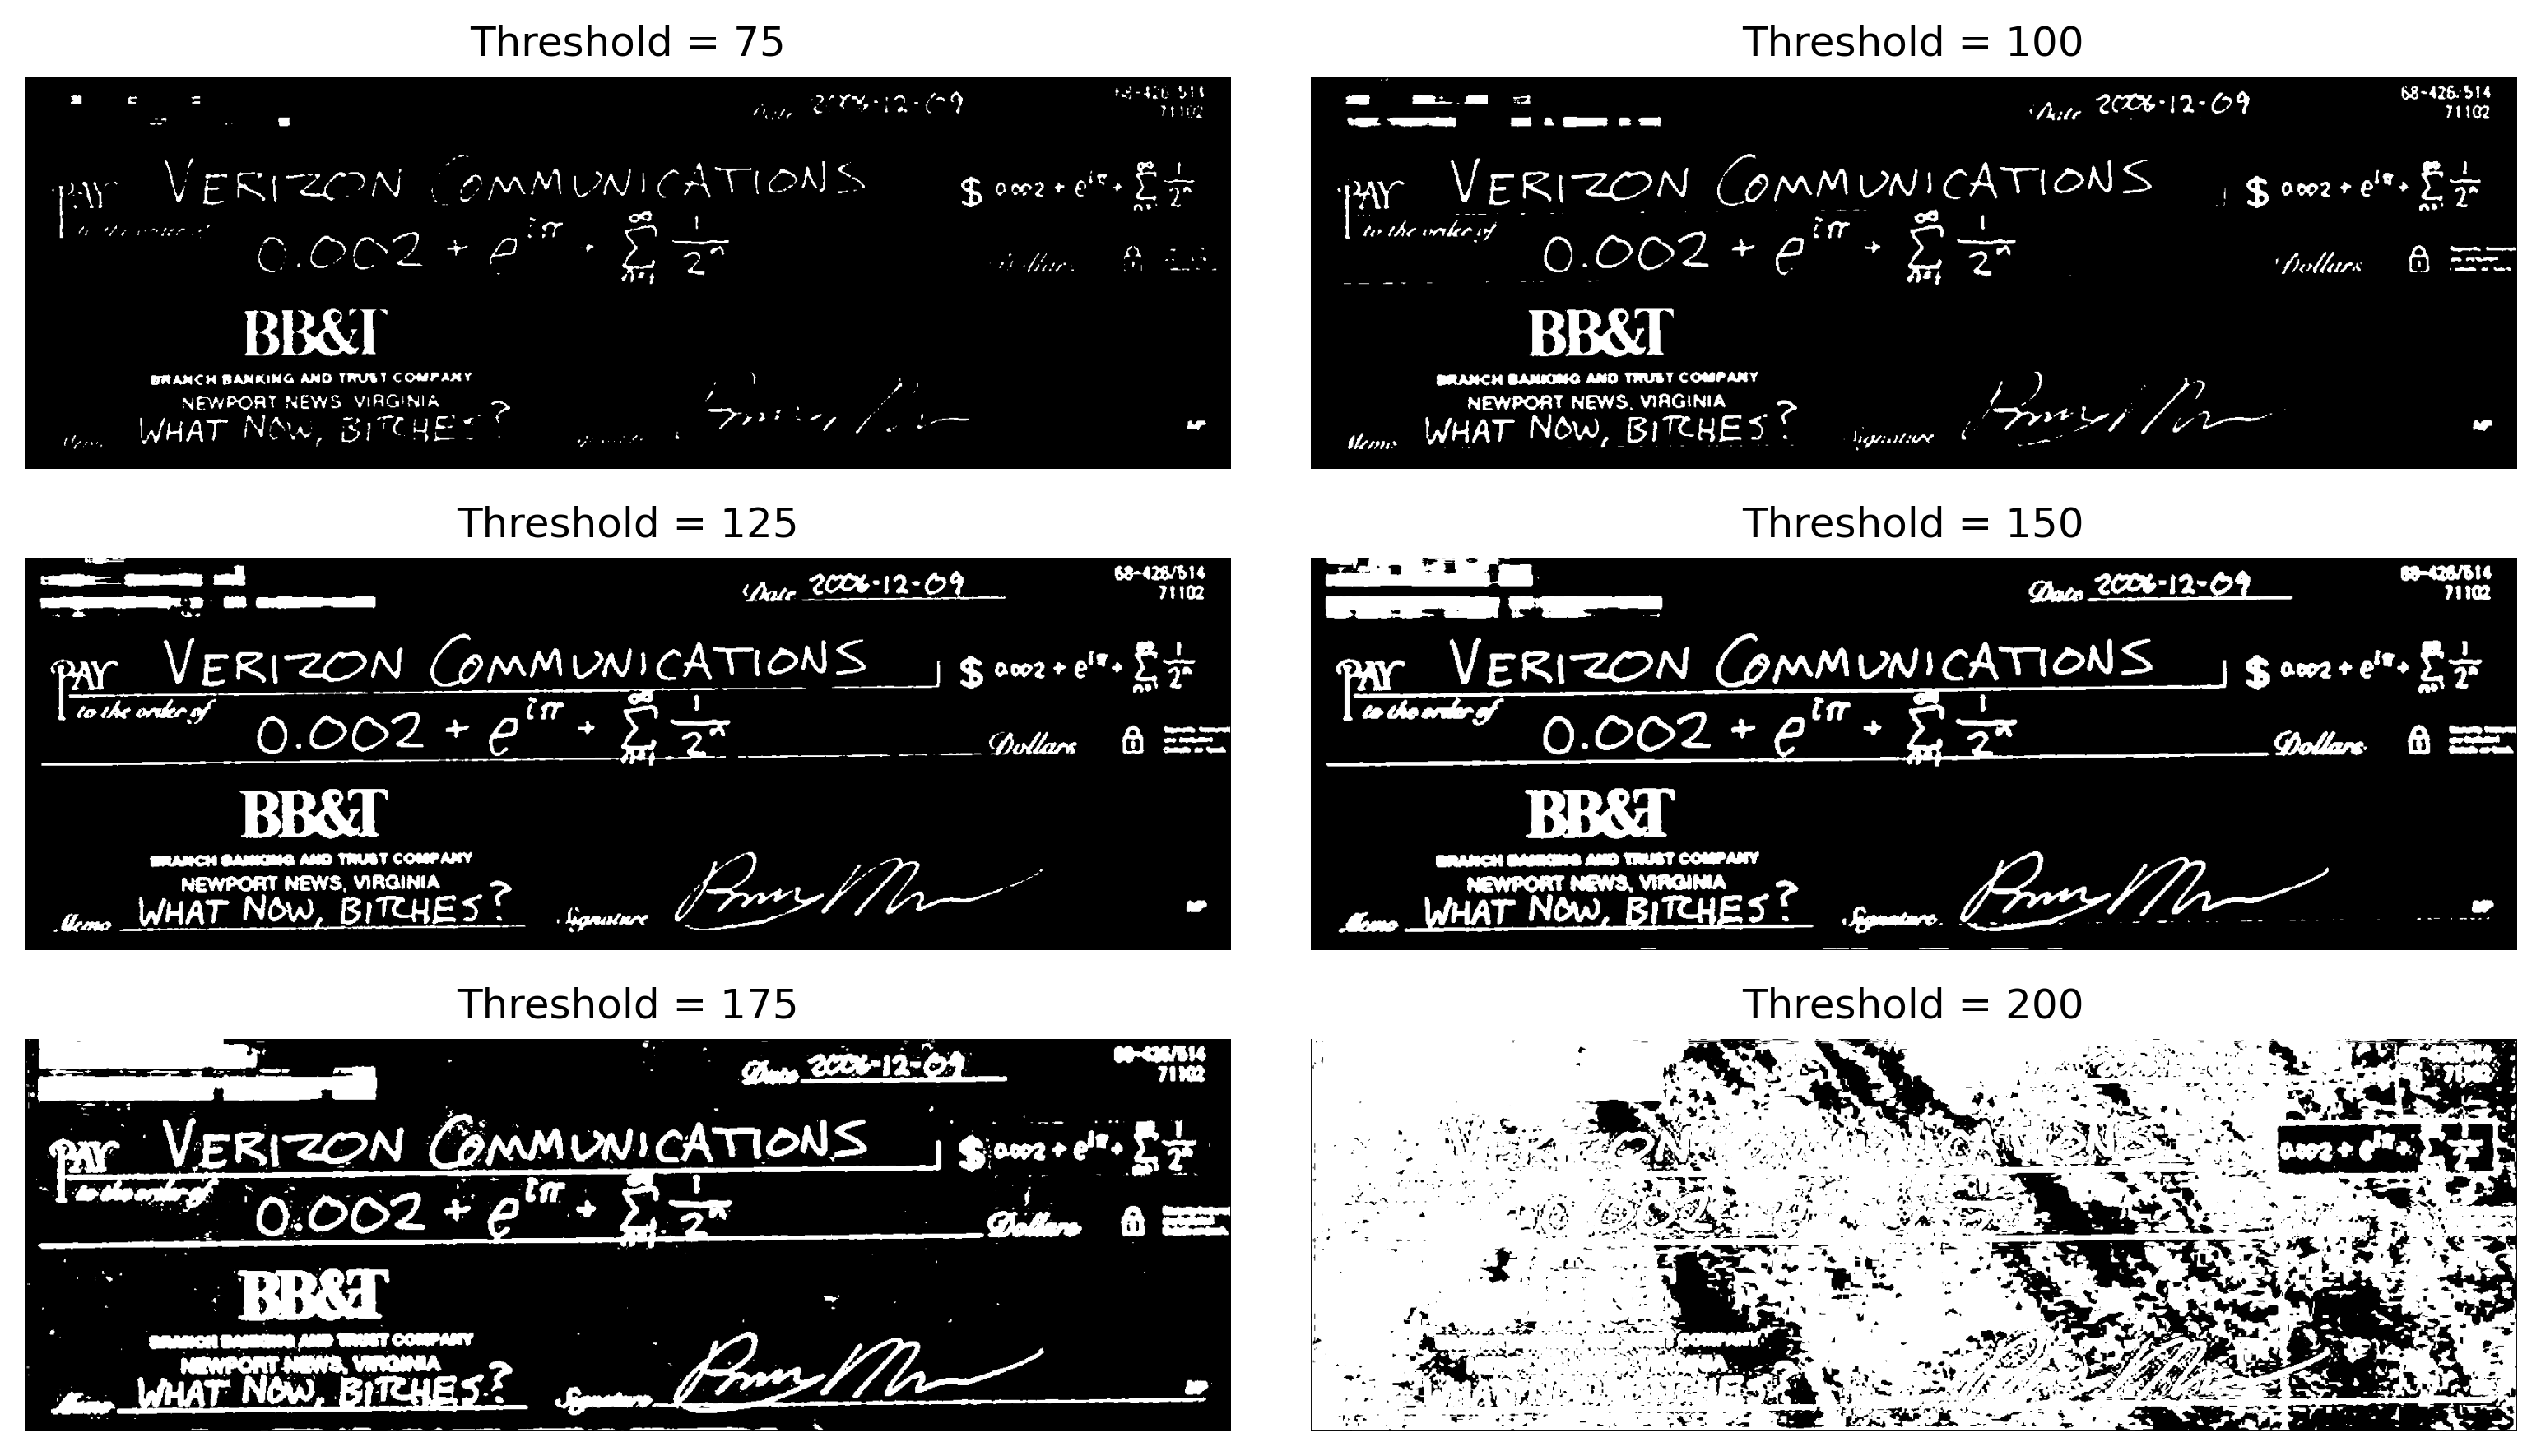 Threshold = 75
Date 2006-12-09
68-426/514
71102
PAY VERIZON COMMUNICATIONS $ 0.002 + e^iπ + ∞ Σ n=1 1/2^n
to the order of
0.002 + e^iπ + ∞ Σ n=1 1/2^n Dollars
BB&T
BRANCH BANKING AND TRUST COMPANY
NEWPORT NEWS, VIRGINIA
Memo WHAT NOW, BITCHES?
MP
Threshold = 100
Date 2006-12-09
68-426/514
71102
PAY VERIZON COMMUNICATIONS $ 0.002 + e^iπ + ∞ Σ n=1 1/2^n
to the order of
0.002 + e^iπ + ∞ Σ n=1 1/2^n Dollars
BB&T
BRANCH BANKING AND TRUST COMPANY
NEWPORT NEWS, VIRGINIA
Memo WHAT NOW, BITCHES? Signature
MP
Threshold = 125
Date 2006-12-09
68-426/514
71102
PAY VERIZON COMMUNICATIONS $ 0.002 + e^iπ + ∞ Σ n=1 1/2^n
to the order of
0.002 + e^iπ + ∞ Σ n=1 1/2^n Dollars
BB&T
BRANCH BANKING AND TRUST COMPANY
NEWPORT NEWS, VIRGINIA
Memo WHAT NOW, BITCHES? Signature
MP
Threshold = 150
Date 2006-12-09
68-426/514
71102
PAY VERIZON COMMUNICATIONS $ 0.002 + e^iπ + ∞ Σ n=1 1/2^n
to the order of
0.002 + e^iπ + ∞ Σ n=1 1/2^n Dollars
BB&T
BRANCH BANKING AND TRUST COMPANY
NEWPORT NEWS, VIRGINIA
Memo WHAT NOW, BITCHES? Signature
MP
Threshold = 175
Date 2006-12-09
68-426/514
71102
PAY VERIZON COMMUNICATIONS $ 0.002 + e^iπ + ∞ Σ n=1 1/2^n
to the order of
0.002 + e^iπ + ∞ Σ n=1 1/2^n Dollars
BB&T
BRANCH BANKING AND TRUST COMPANY
NEWPORT NEWS, VIRGINIA
Memo WHAT NOW, BITCHES? Signature
MP
Threshold = 200
71102
VERIZON COMMUNICATIONS 0.002 + e^iπ + Σ 1/2^n
0.002
WHAT NOW, BITCHES?